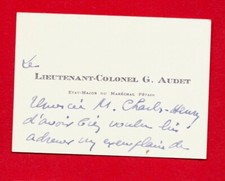 Le
LIEUTENANT-COLONEL G. AUDET
ETAT-MAJOR DU MARÉCHAL PÉTAIN
remercie M. Charles-Henry
d'avoir bien voulu lui
adresser un exemplaire de